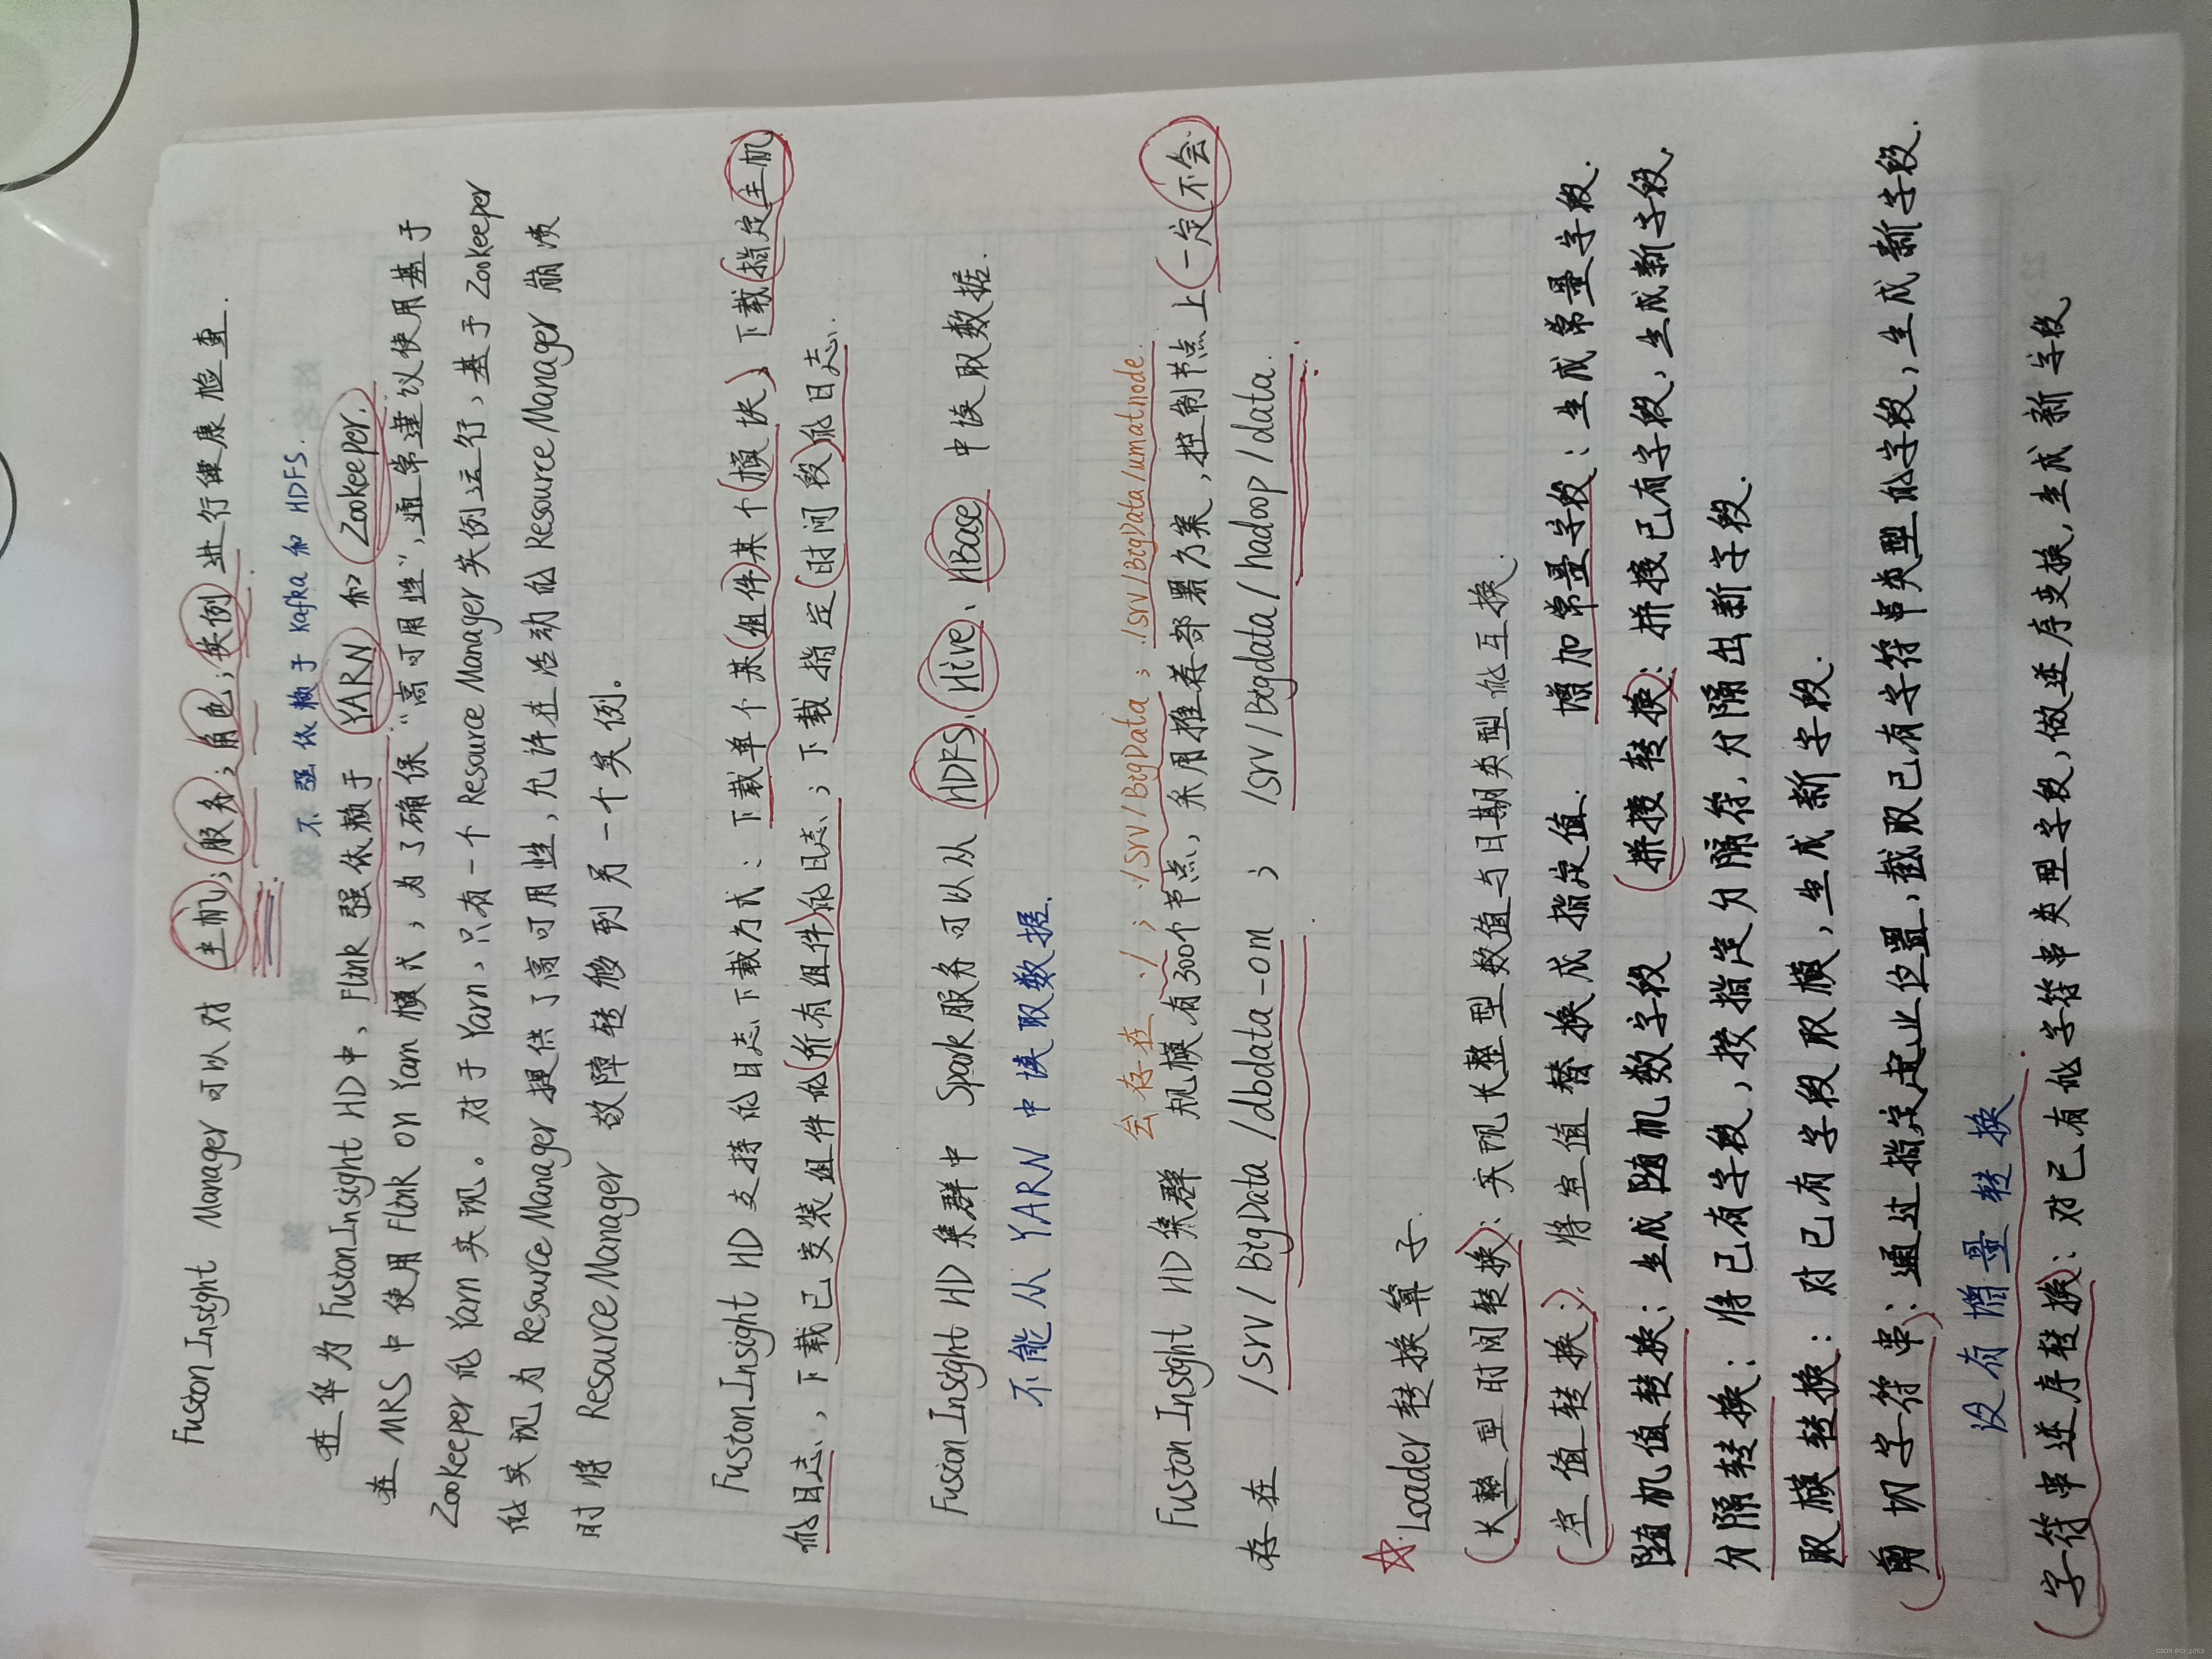 FusionInsight Manager 可以对 主机；服务；角色；实例 进行健康检查.
不强依赖于 Kafka 和 HDFS.
在华为 FusionInsight HD中，Flink 强依赖于 YARN 和 Zookeeper.
在 MRS 中 使用 Flink on Yarn 模式，为了确保“高可用性”，通常建议使用基于
Zookeeper 的 Yarn 实现。对于 Yarn，只有一个 Resource Manager 实例运行，基于 Zookeeper
的实现为 Resource Manager 提供了高可用性，允许在活动的 Resource Manager 崩溃
时将 Resource Manager 故障转移到另一个实例。
FusionInsight HD 支持的日志下载方式：下载单个某组件某个模块，下载指定主机
的日志，下载已安装组件的所有组件的日志；下载指定时间段的日志.
FusionInsight HD 集群中 Spark 服务可以从 HDFS、Hive、HBase 中读取数据.
不能从 YARN 中读取数据.
会存在 :/ ; :/srv/BigData ; :/srv/BigData/umatnode.
FusionInsight HD 集群 规模有300个节点，采用推荐部署方案，控制节点上一定不会
存在 /srv/BigData/dbdata-om ; /srv/Bigdata/hadoop/data.
☆.Loader 转换算子.
长整型时间转换：实现长整型数值与日期类型的互换.
空值转换：将空值替换成指定值. 增加常量字段：生成常量字段.
随机值转换：生成随机数字段 拼接转换：拼接已有字段，生成新字段.
分隔转换：将已有字段，按指定分隔符，分隔出新字段.
取模转换：对已有字段取模，生成新字段.
剪切字符串：通过指定起止位置，截取已有字符串类型的字段，生成新字段.
没有增量转换
字符串逆序转换：对已有的字符串类型字段，做逆序变换，生成新字段